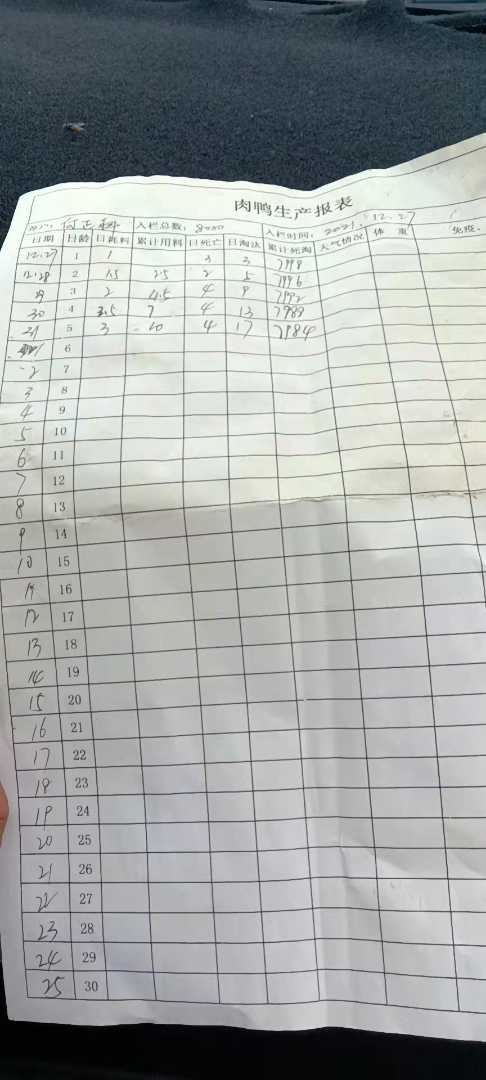 肉鸭生产报表
何正 入栏总数: 8000 入栏时间: 2021.12.27
日期 日龄 日耗料 累计用料 日死亡 日淘汰 累计死淘 天气情况 体重 免疫.
12.27 1 1 3 3 7998
12.28 2 1.5 2.5 2 5 7996
29 3 2 4.5 4 9 7992
30 4 2.5 7 4 13 7988
31 5 3 10 4 17 7984
6
2 7
3 8
4 9
5 10
6 11
7 12
8 13
9 14
10 15
11 16
12 17
13 18
14 19
15 20
16 21
17 22
18 23
19 24
20 25
21 26
22 27
23 28
24 29
25 30